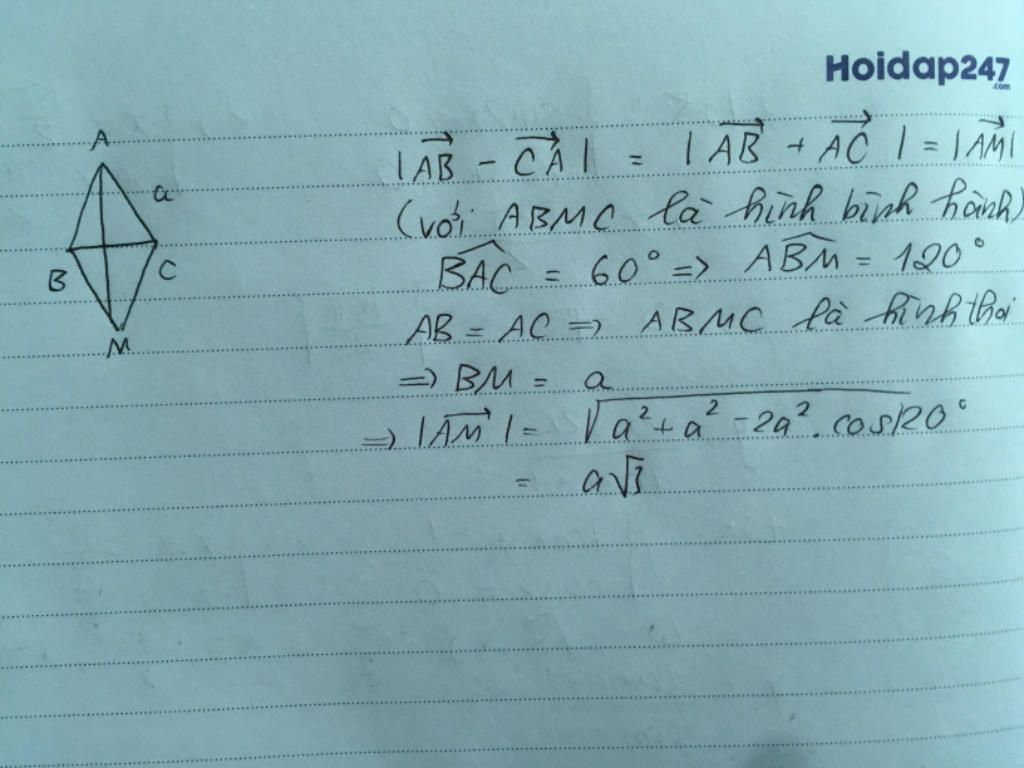 Hoidap247
.com
A
a
B
C
M
|AB⃗ - CA⃗| = |AB⃗ + AC⃗| = |AM⃗|
(với ABMC là hình bình hành)
B̂AC = 60° => ÂBM = 120°
AB = AC => ABMC là hình thoi
=> BM = a
=> |AM⃗| = √(a² + a² - 2a² . cos120°)
= a√3